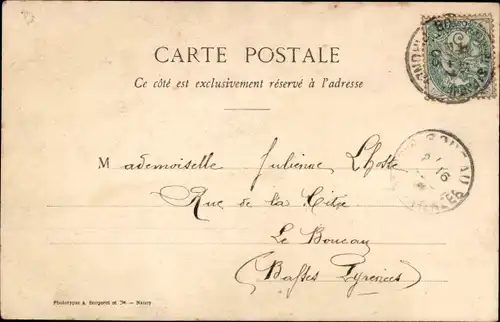 CARTE POSTALE
Ce côté est exclusivement réservé à l'adresse
Mademoiselle Julienne Lhoste
Rue de la
Le Boucau
(Basses Pyrenées)
Phototypie A. Bergeret et Cie. — Nancy